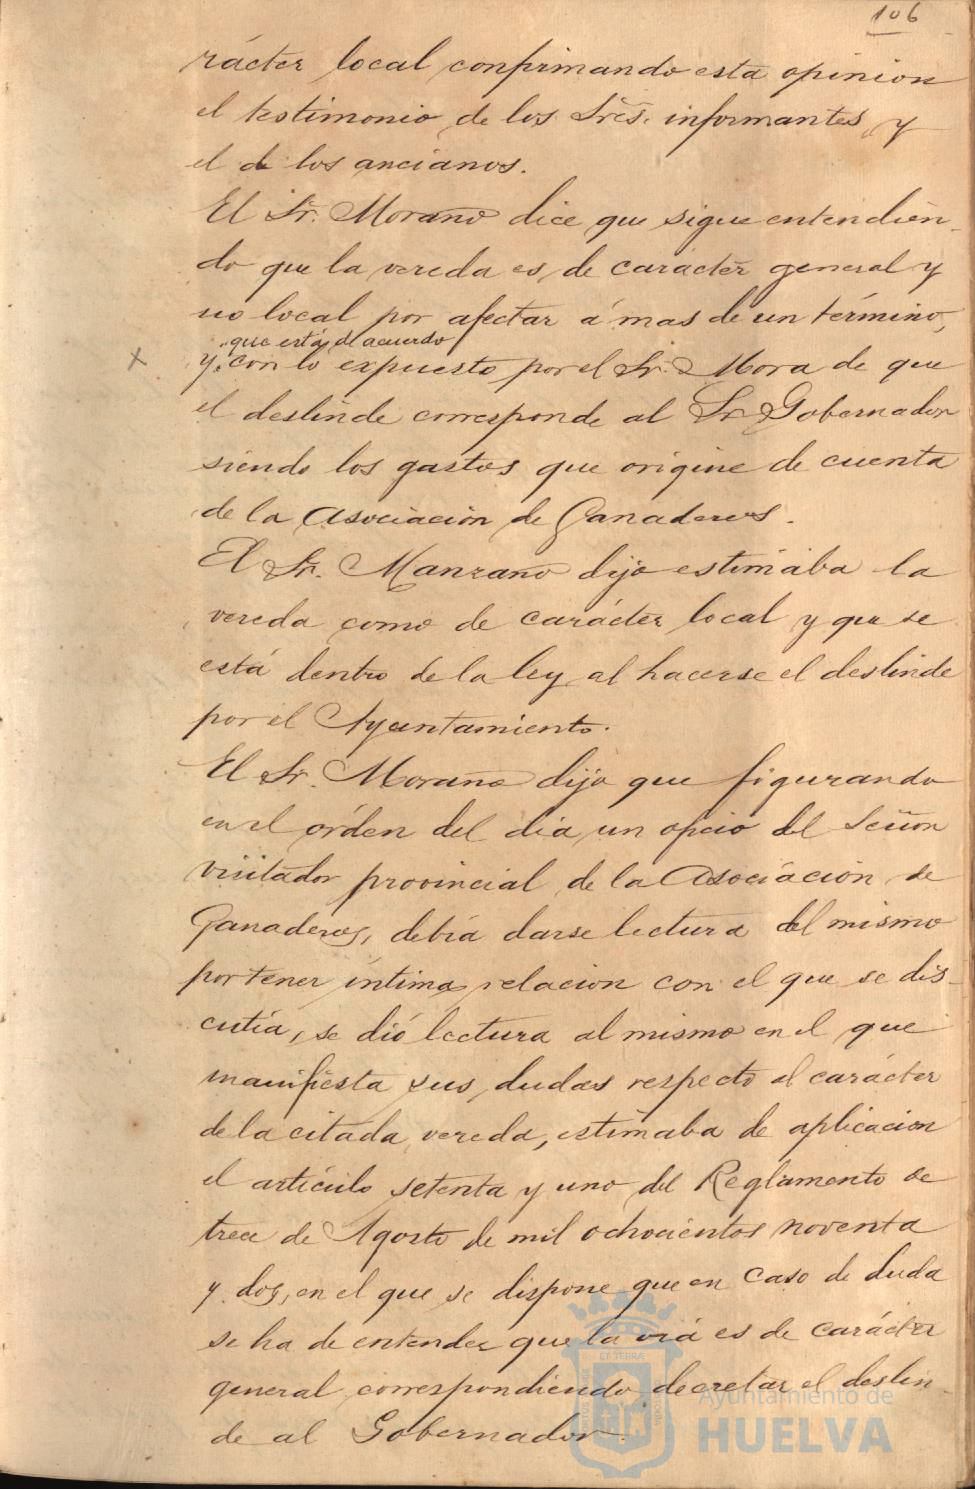 106
rácter local confirmando esta opinion
el testimonio de los Sres. informantes y
el de los ancianos.
El Sr. Moraño dice que sigue entendien-
do que la vereda es de caracter general y
no local por afectar á mas de un término,
que está de acuerdo
x y con lo expuesto por el Sr. Mora de que
el deslinde corresponde al Sr Gobernador
siendo los gastos que origine de cuenta
de la Asociación de Ganaderos.
El Sr. Manzano dijo estimaba la
vereda como de carácter local y que se
está dentro de la ley al hacerse el deslinde
por el Ayuntamiento.
El Sr. Moraño dijo que figurando
en el órden del dia un oficio del Señor
visitador provincial de la Asociación de
Ganaderos, debia darse lectura del mismo
por tener íntima relacion con el que se dis-
cutia, se dió lectura al mismo en el que
manifiesta sus dudas respecto al carácter
de la citada vereda, estimaba de aplicacion
el artículo setenta y uno del Reglamento de
trece de Agosto de mil ochocientos noventa
y dos, en el que se dispone que en caso de duda
se ha de entender que la via es de carácter
general correspondiendo decretar el deslin-
de al Gobernador.
Ayuntamiento de
HUELVA